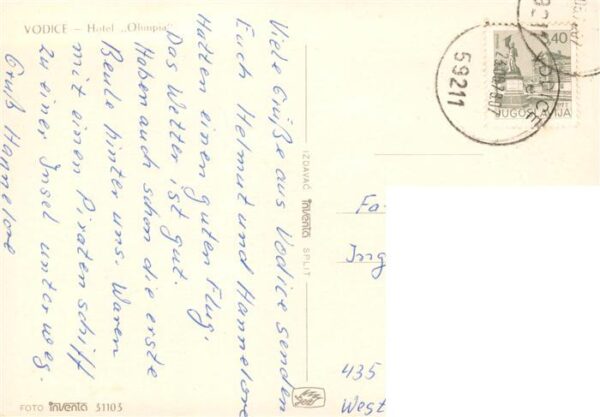 VODICE — Hotel „Olimpia“
Viele Grüße aus Vodice senden
Euch Helmut und Hannelore
Hatten einen guten Flug.
Das Wetter ist gut.
Haben auch schon die erste
Beule hinter uns. Waren
mit einen Piratenschiff
zu einer Insel unterweg.
Gruß Hannelore
FOTO inventa 31103
IZDAVAČ inventa SPLIT
59211
VODICE
3.40
JUGOSLAVIJA
59211
Fa-
Ing
435
West